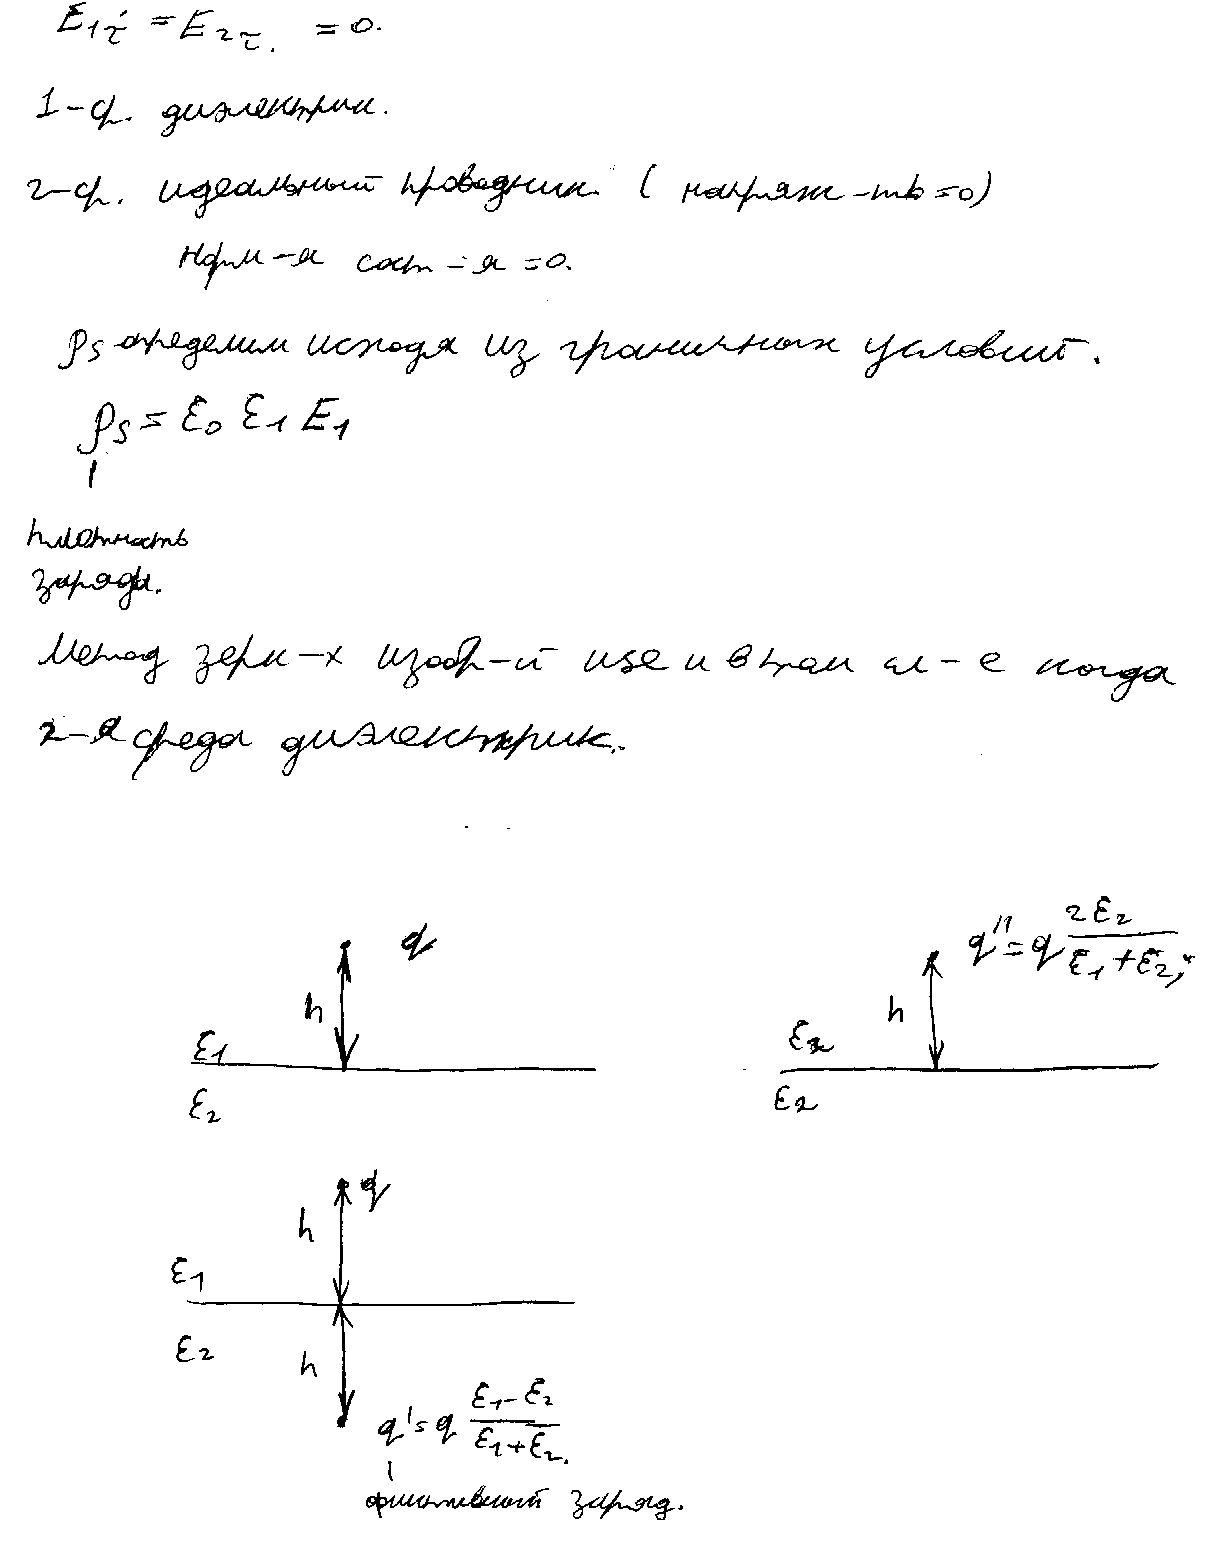 E₁τ = E₂τ. = 0.
1-ср. диэлектрик.
2-ср. идеальный проводник. (напряж-ть=0)
норм-я сост-я =0.
ρs определим исходя из граничных условий.
ρs = ε₀ ε₁ E₁
плотность
заряда.
Метод зерк-х изобр-й исп и в том сл-е когда
2-я среда диэлектрик.
q
h
ε₁
ε₂
q'' = q 2ε₂ / (ε₁+ε₂),
h
ε₂
ε₂
q
h
ε₁
ε₂
h
q' = q (ε₁-ε₂) / (ε₁+ε₂).
фиктивный заряд.